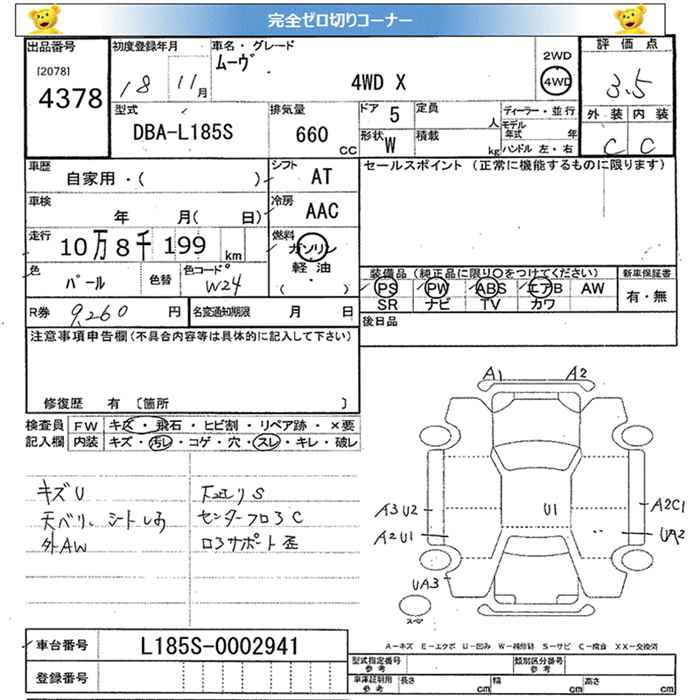 完全ゼロ切りコーナー
出品番号
[2078]
4378
初度登録年月
18 11月
車名・グレード
ムーヴ
4WD X
2WD
4WD
評価点
3.5
型式
DBA-L185S
排気量
660 CC
ドア 5
形状 W
定員 人
積載 kg
ディーラー・並行
モデル年式 年
ハンドル 左・右
外装 内装
C C
車歴
自家用・( )
シフト AT
車検
年 月( 日)
冷房 AAC
走行
10万8千199 km
燃料
ガソリン
軽油
( )
色
パール
色替
色コード
W24
R券 9,260 円
名変通知期限 月 日
セールスポイント(正常に機能するものに限ります)
装備品(純正品に限り○をつけてください)
PS PW ABS エアB AW
SR ナビ TV カワ
新車保証書
有・無
後日品
注意事項申告欄(不具合内容等は具体的に記入して下さい)
修復歴 有 [箇所 ]
検査員記入欄
FW キズ・飛石・ヒビ割・リペア跡・×要
内装 キズ・汚レ・コゲ・穴・スレ・キレ・破レ
キズU
外AW
センターフロアC
A1 A2
A3 U2
A2 U1
U1
A2C1
UA2
UA3
スペア
車台番号 L185S-0002941
登録番号
A-キズ E-エクボ U-凹み W-補修跡 S-サビ C-腐食 XX-交換済
型式指定番号 参考
類別区分番号 参考
車庫証明用 参考
長さ cm 幅 cm 高さ cm